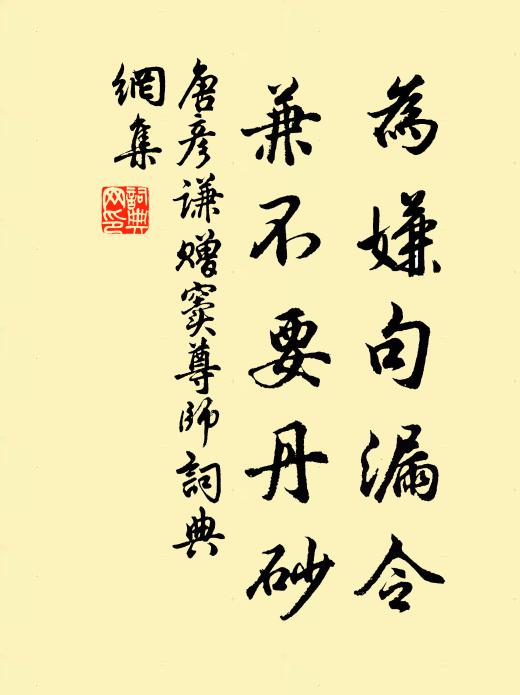 為嫌句漏令
兼不要丹砂
唐彥謙贈竇尊師詞典
網集
詞典
网印